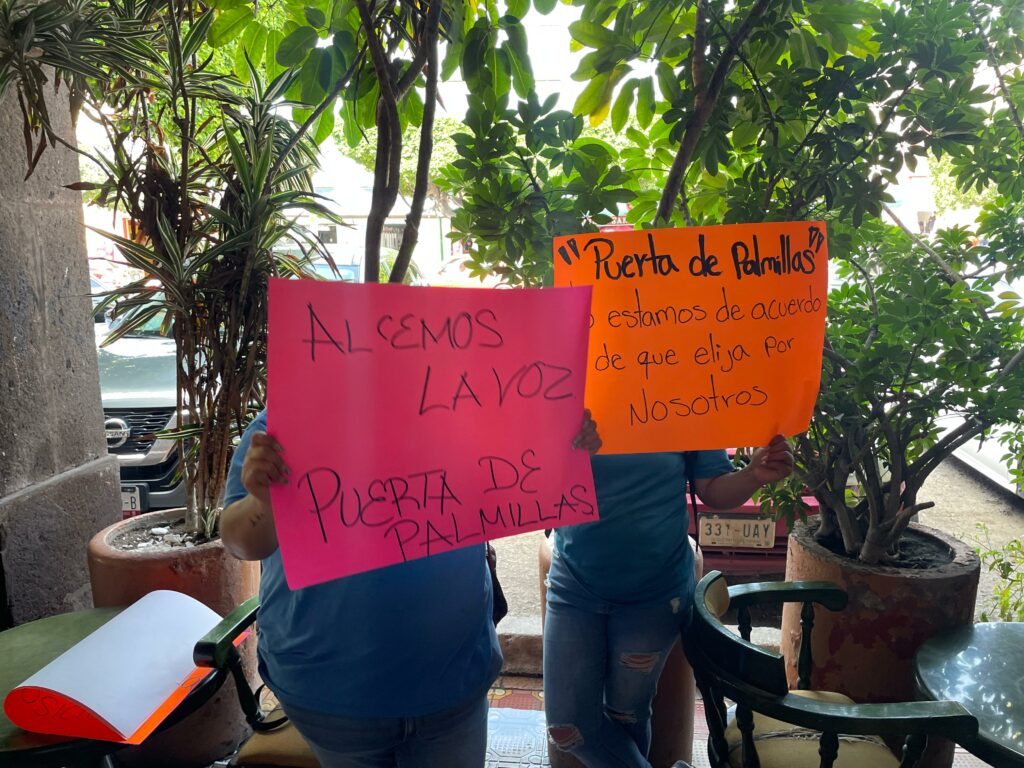 ALCEMOS
LA VOZ
PUERTA DE
PALMILLAS
"Puerta de Palmillas"
estamos de acuerdo
de que elija por
Nosotros
NISSAN
331-UAY